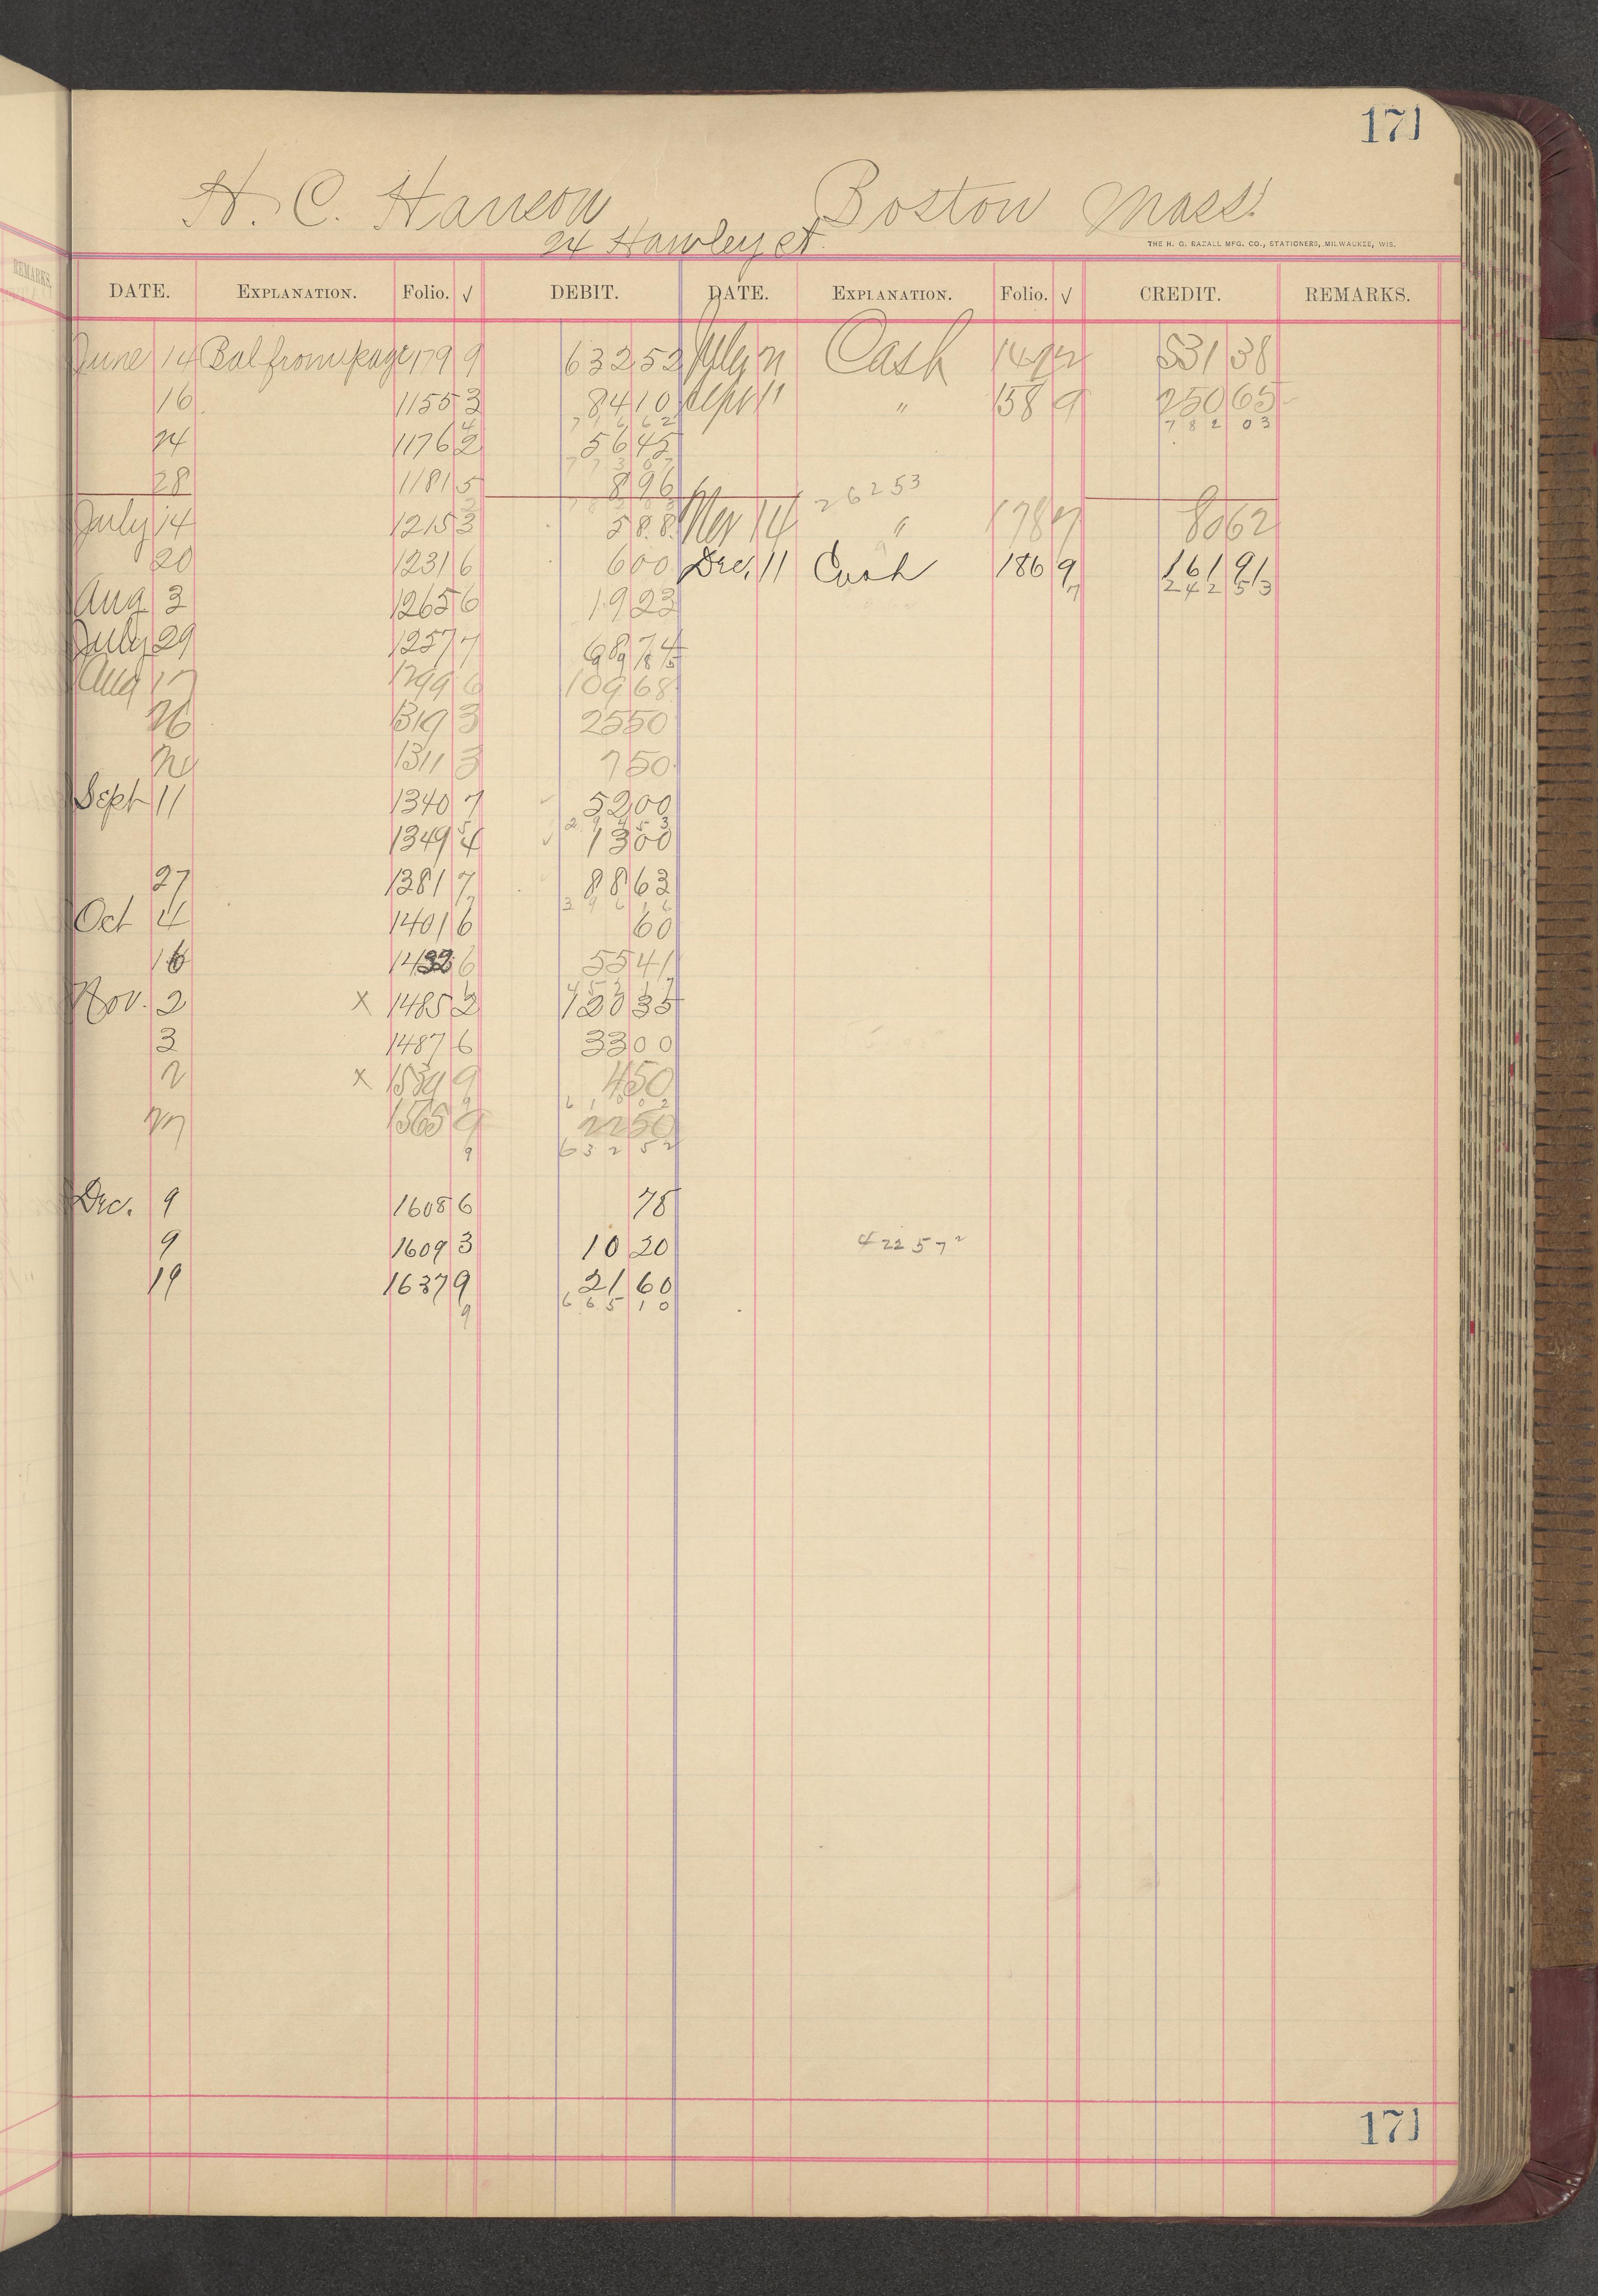 171
H. C. Hanson Boston Mass.
24 Hawley st.
THE H. G. RAZALL MFG. CO., STATIONERS, MILWAUKEE, WIS.
REMARKS.
DATE. EXPLANATION. Folio. √ DEBIT. DATE. EXPLANATION. Folio. √ CREDIT. REMARKS.
June 14 Bal from page 179 9 632 52 July Cash 531 38
16 1155 3 84 10 Sept 11 " 158 9 250 65
7 1 6 6 2 7 8 2 0 3
24 1176 2 56 45
28 1181 5 8 96
262 53
July 14 1215 3 5 88 Nov 14 " 178 7 80 62
20 1231 6 6 00 Dec. 11 Cash 186 9 161 91
2 4 2 5 3
Aug 3 1265 6 19 23
July 29 1257 7 68 74
9 9 8 5
Aug 17 1299 6 109 68
26 1319 3 25 50
1311 3 7 50
Sept 11 1340 7 52 00
2 9 4 5 3
1349 4 √ 13 00
27 1381 7 88 63
3 9 6 1 6
Oct 4 1401 6 60
16 1433 6 55 41
4 5 2 1 7
Nov. 2 x 1485 2 120 35
3 1487 6 33 00
2 x 1539 9 4 50
6 1 0 0 2
1565 9 22 50
9 6 3 2 5 2
Dec. 9 1608 6 78
9 1609 3 10 20 422 57
19 1637 9 21 60
9 6 6 5 1 0
171